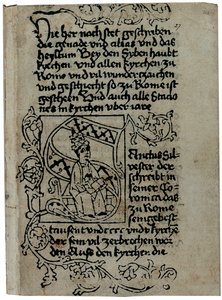 Hie her nach stet geschriben
die genade und ablas und das
heyltum Bey den syben haubt
kyrchen und allen kyrchen zu
Rome und vil wunderzaichen
und geschicht so zu Rome ist
geschehen Und auch alle Stacio
nes in kyrchen uber iare
Anctus Sil
vester der
schreibt in
seiner Co
ronica das
zu Rome
sein gebest
tausent und cccc und kyrchē
der sein vil zerbrochen wor
den Auß den kyrchen die